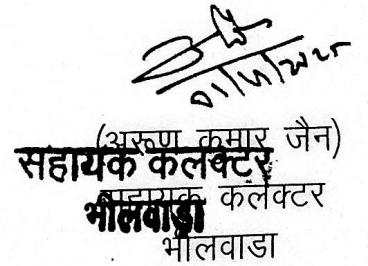 (अरूण कुमार जैन)
सहायक कलेक्टर
सहायक कलेक्टर
भीलवाडा
भीलवाडा